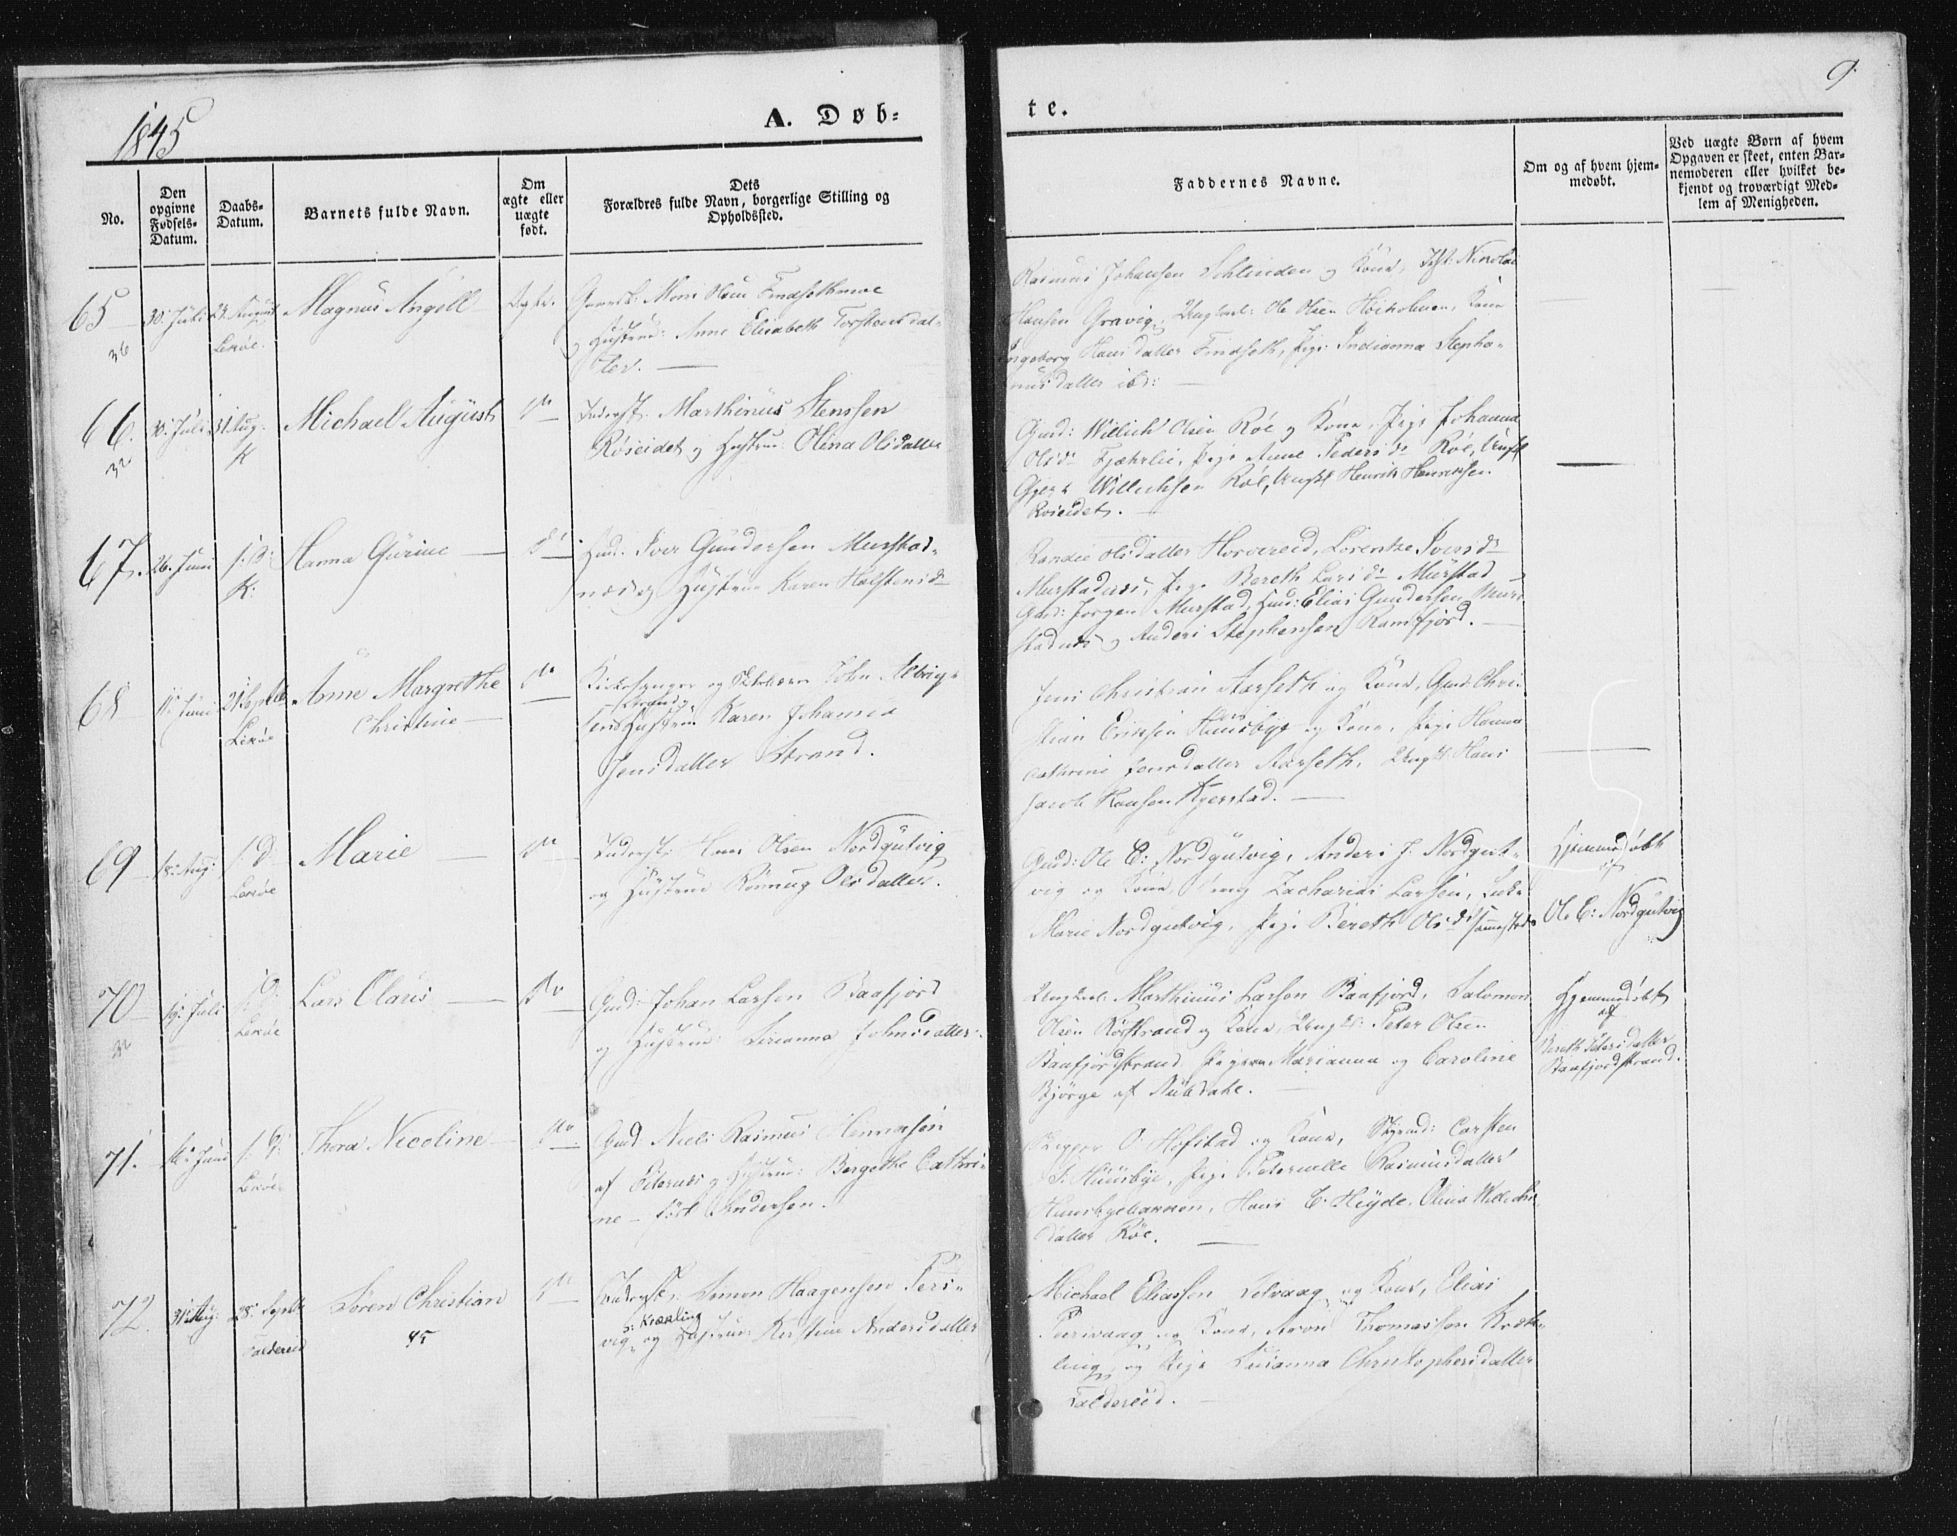 1845
A. Døb-
te.
9.
No.
Den
opgivne
Fødsels-
Datum.
Daabs-
Datum.
Barnets fulde Navn.
Om
ægte eller
uægte
født.
Dets
Forældres fulde Navn, borgerlige Stilling og
Opholdssted.
Faddernes Navne.
Om og af hvem hjem-
medøbt.
Ved uægte Børn af hvem
Opgaven er skeet, enten Bar-
nemoderen eller hvilket be-
kjendt og troværdigt Med-
lem af Menigheden.
65
30. Juli
24. August
Lekøe.
Magnus Angell
Ægte.
Mons Olsen
og Hustrue: Anne Elisabeth Torstensdat-
ter.
Rasmus Johansen og Kone, Nicolai
Hansen Gravig, Ungkarl: Ole Olsen Hoiholmen, Kone
Ingeborg Hansdatter Findseth, Pige Indianna Stepha-
nusdatter ibd:
66.
30. Juli
31 Aug.
K
Michael August
do
Inderst. Marthinus Stenssen
Røseidet og Hustrue Olina Olsdatter
Gmd: Willich Olsen Röe og Kone, Pige Johanna
Olsdr Fjæhrlie, Pige Anne Pedersdr Röe, Ungk
Willichsen Röe, Ungkl Henrik Henrichsen
Röseidet.
67.
26. Juni
K:
Hanna Gurine
do
Huusmd. Iver Gundersen Murstad-
næs og Hustrue Karen Halstensdr
Randie Olsdatter Horvereid, Lorentze Iversdr
Murstadnæs, Pige Bereth Larsdr Murstad
Gmd: Jørgen Murstad, Huusmd: Elias Gundersen Mur-
stadnæs og Anders Stephensen Ramfjord.
68
11. Juni
21 Septbr
Lekøe
Anne Margrethe
Christine
do
Kirkesanger og Skolelærer John
Strand
Hustrue Karen Johanna
Jensdatter Strand.
Jens Christian Aarseth og Kone, Gmd: Chri-
stian Eriksen Huusbye og Kone, Pige Hanna
Cathrine Jensdatter Aarseth, Ungkl Hans
Jacob Hansen Kjerstad.
69
18. Aug:
s: D.
Lekøe
Marie
do
Inderst: Hans Olsen Nordgutvig
og Hustrue Rönnug Olsdatter.
Gmd: Ole E: Nordgutvig, Anders J. Nordgut-
vig og Kone, Zacharias Larsen, Enke
Marie Nordgutvig, Pige Bereth Olsdr sammesteds
Hjemmedøbt
af
Ole E: Nordgutvig
70
19. Juli
s. D.
Lekøe
Lars Olaus
do
Gmd: Johan Larsen Baafjord
og Hustrue: Sirianna Johnsdatter.
Ungkarl: Marthinus Larsen Baafjord, Salomon
Olsen Röestrand og Kone, Ungkl: Peter Olsen
Baafjordstrand, Pigerne Marianna og Caroline
Bjørge af Nubdahl.
Hjemmedøbt
af
Bereth Petersdatter
Baafjordstrand.
71.
Juni
s. D:
Lekøe
Thora Nicoline
do
Gmd. Niels Rasmus
af og Hustrue: Bergethe Cathri-
ne - født Andersen.
O. Hofstad og Kone, Carsten
S. Huusbye, Pige Peternelle Rasmusdatter
Hans C. Heyde, Olina Willichs-
datter Röe.
72.
31 Aug:
28. Septbr
Foldereid
Søren Christian
45
do
Inderst: Simon Haagensen Fers-
s: Kræling
vig og Hustrue: Kirstine Andersdatter
Michael Eliassen og Kone, Elias
og Kone, Aron Thomassen Kræk-
ling, og Pige Susanna Christophersdatter
Foldereid.